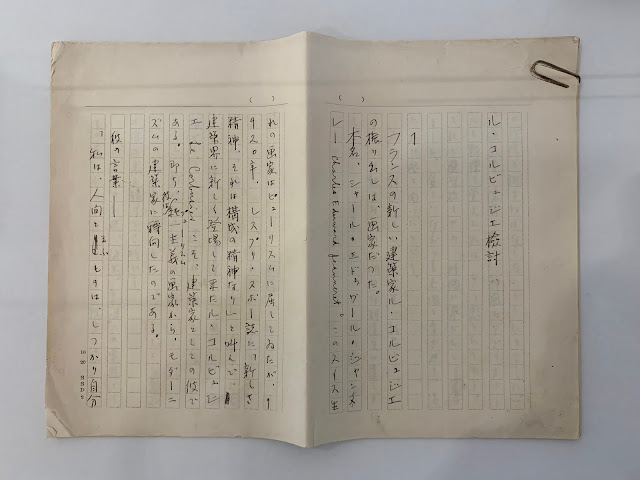 ル・コルビュジエ検討
1
フランスの新しい建築家ル・コルビュジエ
の振り出しは、画家だつた。
本名、シャール・エドゥワール・ジャンヌ
レー Charles Edouard Jeanneret. このスイス生
れの画家はピューリスムに属してゐたが、1
920年、レスプリ・ヌボー誌に「新しき
精神、それは構成の精神なり」と叫んで、
建築界に新しく登場して来たル・コルビュジ
エ Le Corbusier こそ、建築家としての彼で
ある。即ち、主義の画家から、モダーニ
ズムの建築家に轉向したのである。
彼の言葉——
「私は、人間と云ふものは、しつかり自分
10 20